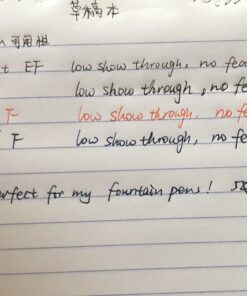 草稿本
可用性
t EF low show through, no fea
low show through, no fe
F low show through, no fe
F low show through, no fe
erfect for my fountain pens!